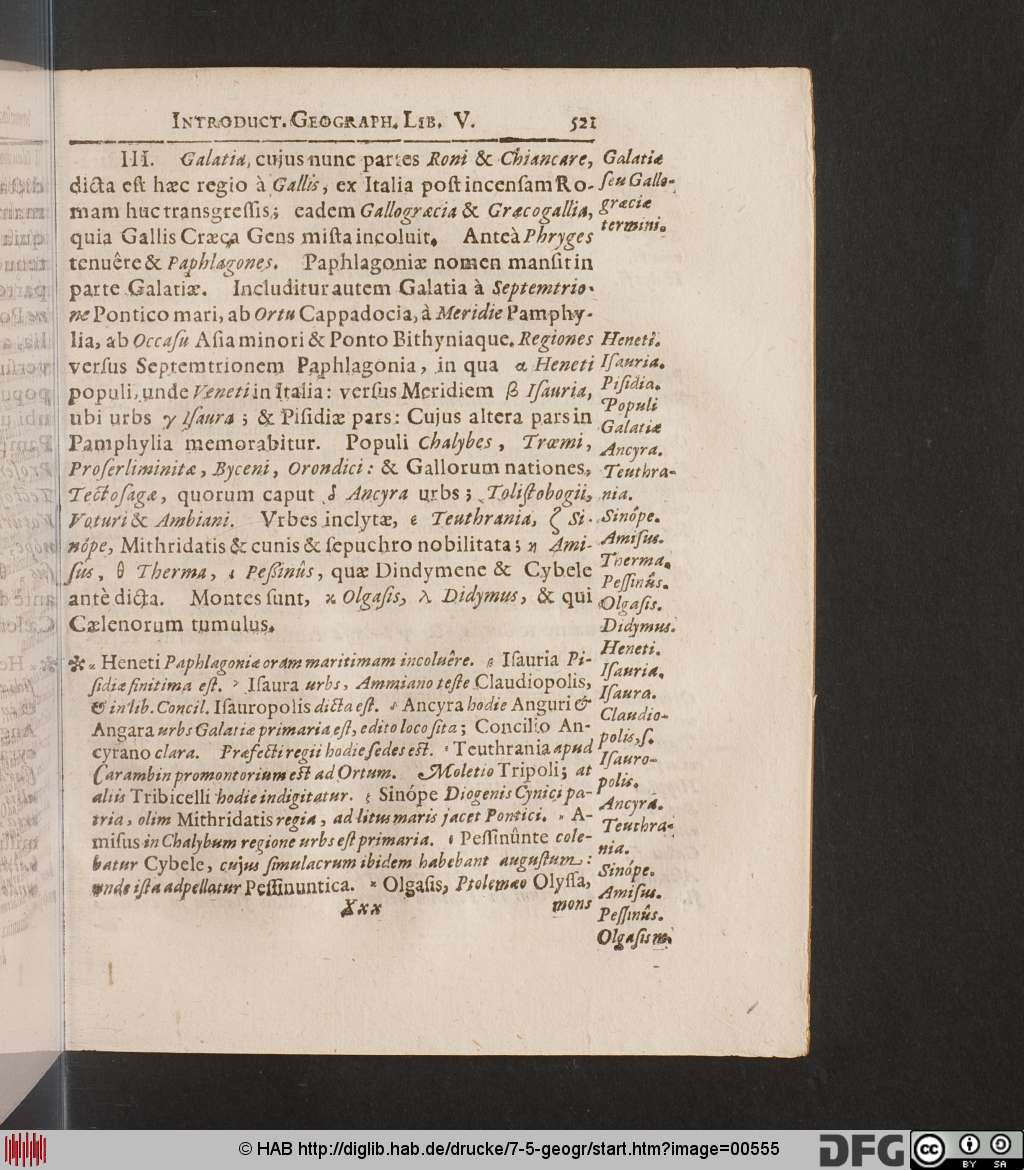 INTRODUCT. GEOGRAPH. LIB. V. 521
III. Galatia, cujus nunc partes Roni & Chiancare,
dicta eſt hæc regio à Gallis, ex Italia poſt incenſam Ro-
mam huc transgreſſis; eadem Gallogræcia & Græcogallia,
quia Gallis Cræca Gens miſta incoluit. Anteà Phryges
tenuêre & Paphlagones. Paphlagoniæ nomen manſit in
parte Galatiæ. Includitur autem Galatia à Septemtrio-
ne Pontico mari, ab Ortu Cappadocia, à Meridie Pamphy-
lia, ab Occaſu Aſia minori & Ponto Bithyniaque. Regiones
verſus Septemtrionem Paphlagonia, in qua α Heneti
populi, unde Veneti in Italia: verſus Meridiem β Iſauria,
ubi urbs γ Iſaura; & Piſidiæ pars: Cujus altera pars in
Pamphylia memorabitur. Populi Chalybes, Træmi,
Proſerliminitæ, Byceni, Orondici: & Gallorum nationes,
Tectoſagæ, quorum caput δ Ancyra urbs; Toliſtobogii,
Voturi & Ambiani. Vrbes inclytæ, ε Teuthrania, ζ Si-
nópe, Mithridatis & cunis & ſepuchro nobilitata; η Ami-
ſus, θ Therma, ι Peſſinûs, quæ Dindymene & Cybele
antè dicta. Montes ſunt, κ Olgaſis, λ Didymus, & qui
Cælenorum tumulus.
✻ α Heneti Paphlagoniæ oram maritimam incoluêre. β Iſauria Pi-
ſidiæ finitima eſt. γ Iſaura urbs, Ammiano teſte Claudiopolis,
& in lib. Concil. Iſauropolis dicta eſt. δ Ancyra hodie Anguri &
Angara urbs Galatiæ primaria eſt, edito loco ſita; Concilio An-
cyrano clara. Præfecti regii hodie ſedes est. ε Teuthrania apud
Carambin promontorium est ad Ortum. Moletio Tripoli; at
aliis Tribicelli hodie indigitatur. ζ Sinópe Diogenis Cynici pa-
tria, olim Mithridatis regia, ad litus maris jacet Pontici. η A-
miſus in Chalybum regione urbs eſt primaria. ι Peſſinûnte cole-
batur Cybele, cujus ſimulacrum ibidem habebant auguſtum:
unde iſta adpellatur Peſſinuntica. κ Olgaſis, Ptolemæo Olyſſa,
Xxx mons
Galatiæ
ſeu Gallo-
græciæ
termini.
Heneti.
Iſauria.
Piſidia.
Populi
Galatiæ
Ancyra.
Teuthra-
nia.
Sinópe.
Amiſus.
Therma.
Peſſinûs.
Olgaſis.
Didymus.
Heneti.
Iſauria.
Iſaura.
Claudio-
polis, ſ.
Iſauro-
polis.
Ancyra.
Teuthra-
nia.
Sinópe.
Amiſus.
Peſſinûs.
Olgaſis m.
© HAB http://diglib.hab.de/drucke/7-5-geogr/start.htm?image=00555
DFG
cc BY SA